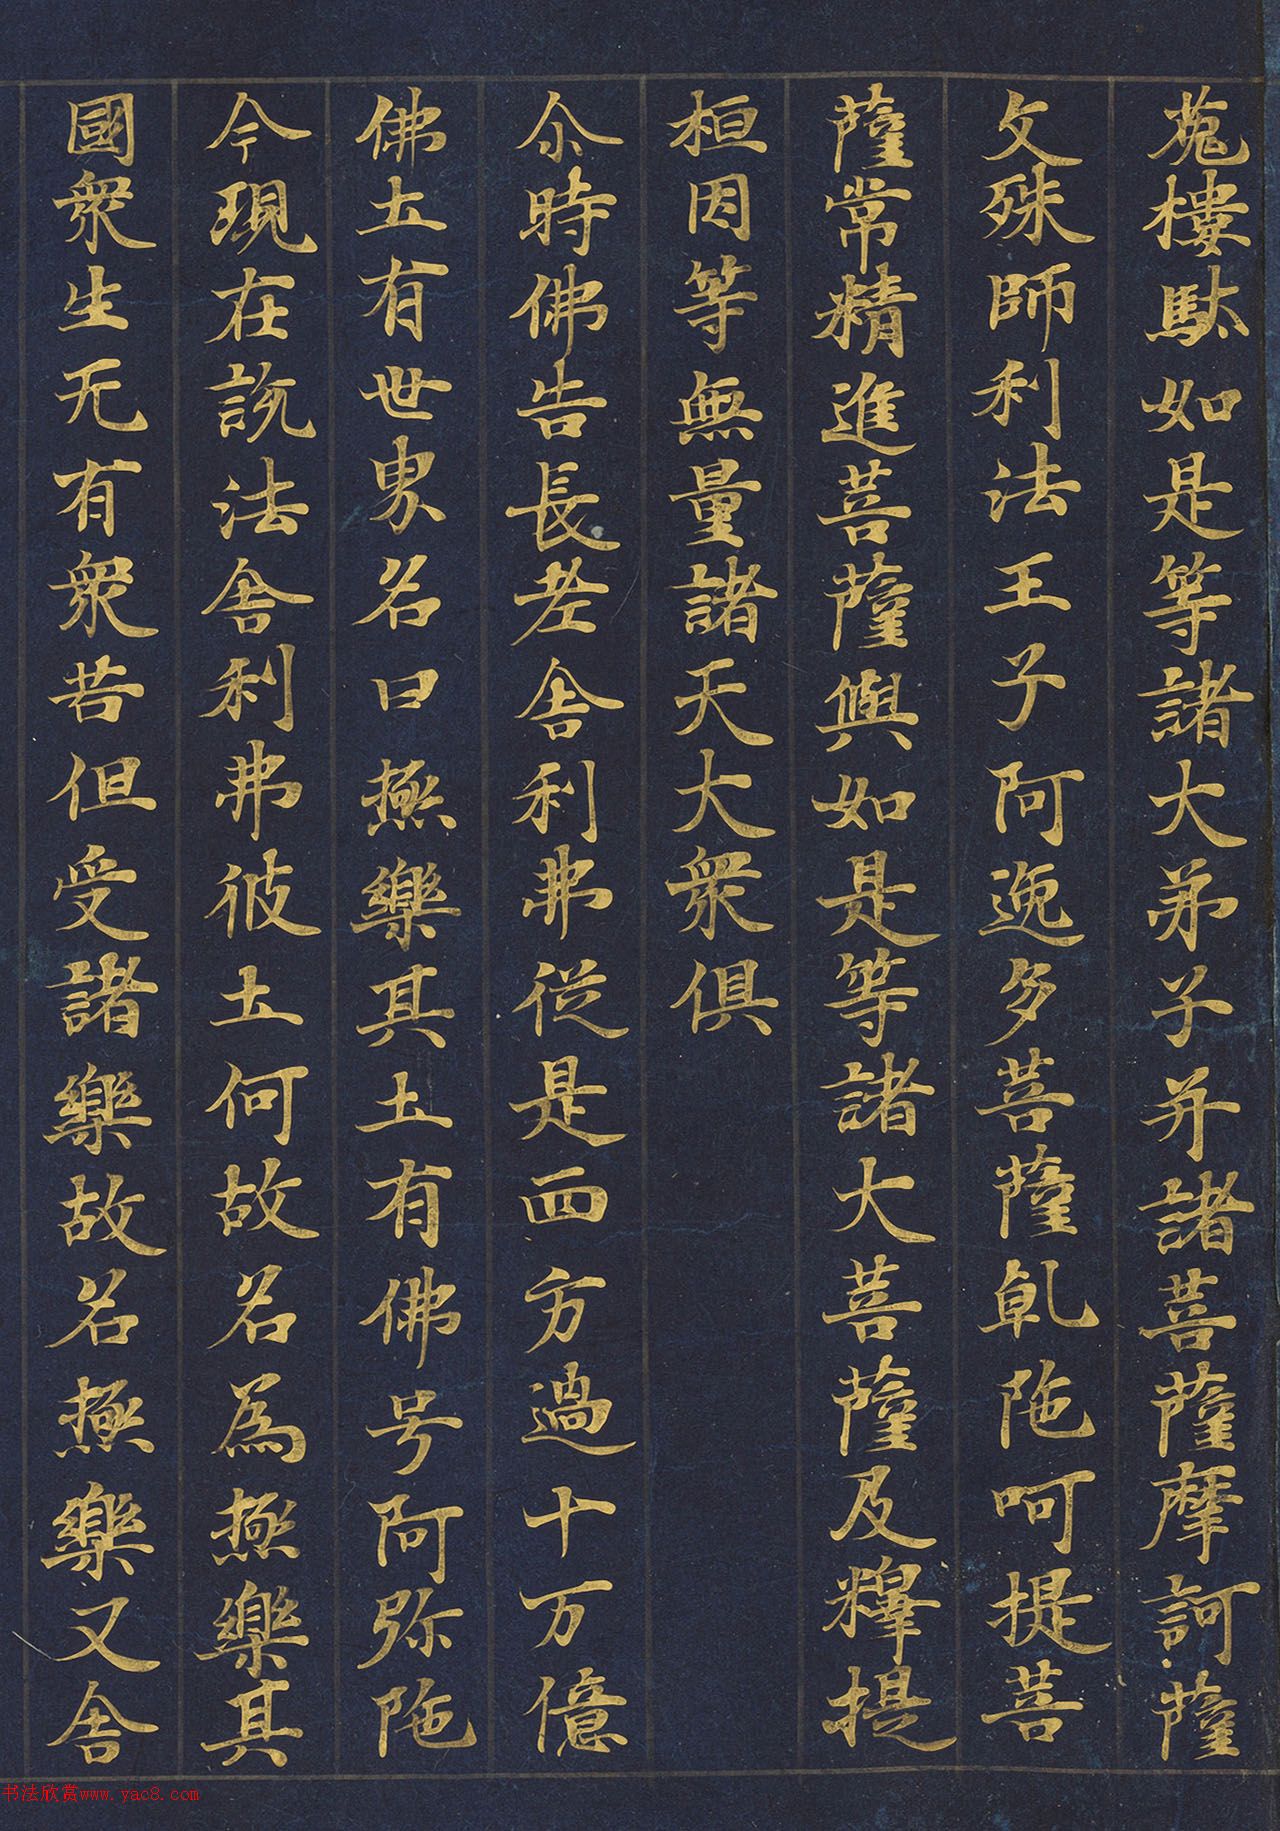 菟樓馱如是等諸大弟子并諸菩薩摩訶薩
文殊師利法王子阿逸多菩薩乹陁呵提菩
薩常精進菩薩與如是等諸大菩薩及釋提
桓因等無量諸天大衆俱
尒時佛告長老舍利弗從是西方過十万億
佛土有世界名曰極樂其土有佛号阿弥陁
今現在說法舍利弗彼土何故名為極樂其
國衆生无有衆苦但受諸樂故名極樂又舍
书法欣赏www.yac8.com